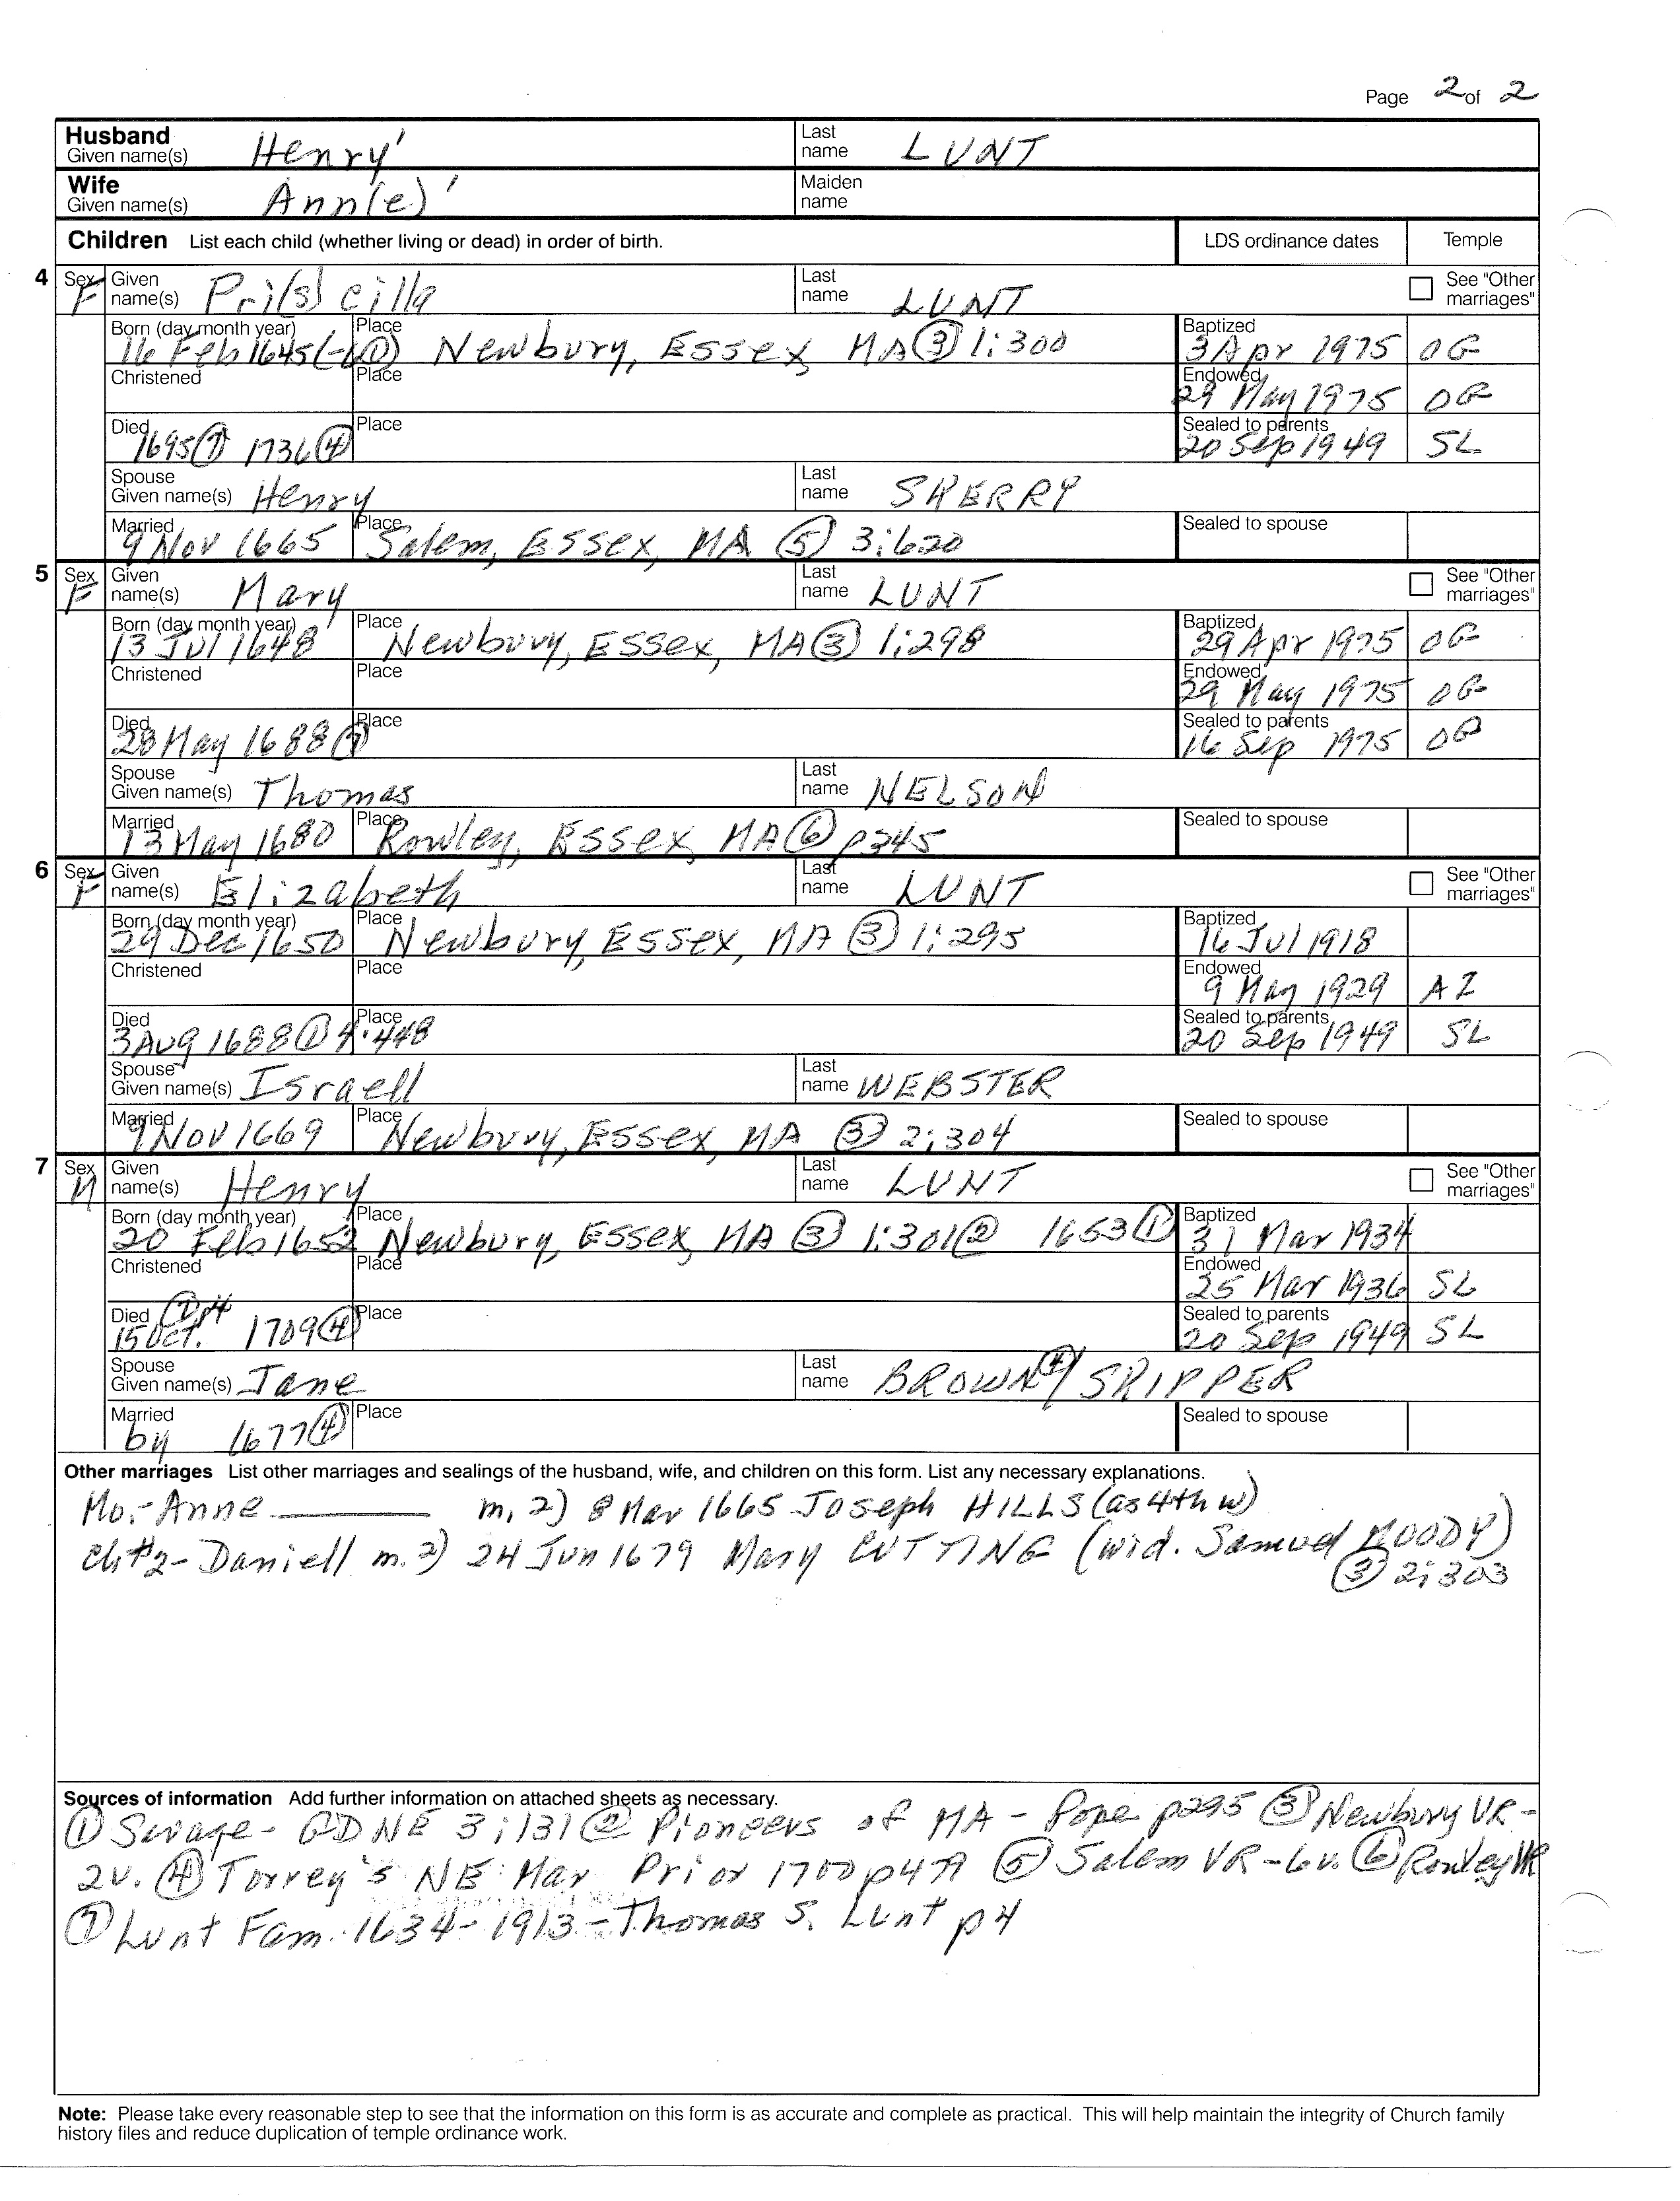 Page 2 of 2
Husband Given name(s) Henry' Last name LUNT
Wife Given name(s) Ann(e)' Maiden name
Children List each child (whether living or dead) in order of birth. LDS ordinance dates Temple
4 Sex F Given name(s) Pri(s)cilla Last name LUNT See "Other marriages"
Born (day month year) 16 Feb 1645(-6①) Place Newbury, Essex, MA ③ 1:300 Baptized 3 Apr 1975 OG
Christened Place Endowed 29 May 1975 OG
Died 1695⑦ 1736④ Place Sealed to parents 20 Sep 1949 SL
Spouse Given name(s) Henry Last name SKERRY
Married 9 Nov 1665 Place Salem, Essex, MA ⑤ 3:620 Sealed to spouse
5 Sex F Given name(s) Mary Last name LUNT See "Other marriages"
Born (day month year) 13 Jul 1648 Place Newbury, Essex, MA ③ 1:298 Baptized 29 Apr 1975 OG
Christened Place Endowed 29 May 1975 OG
Died 28 May 1688⑦ Place Sealed to parents 16 Sep 1975 OG
Spouse Given name(s) Thomas Last name NELSON
Married 13 May 1680 Place Rowley, Essex, MA ⑥ p345 Sealed to spouse
6 Sex F Given name(s) Elizabeth Last name LUNT See "Other marriages"
Born (day month year) 29 Dec 1650 Place Newbury, Essex, MA ③ 1:295 Baptized 16 Jul 1918
Christened Place Endowed 9 May 1929 AZ
Died 3 Aug 1688 ① 4:448 Place Sealed to parents 20 Sep 1949 SL
Spouse Given name(s) Israell Last name WEBSTER
Married 9 Nov 1669 Place Newbury, Essex, MA ③ 2:304 Sealed to spouse
7 Sex M Given name(s) Henry Last name LUNT See "Other marriages"
Born (day month year) 20 Feb 1652 Place Newbury, Essex, MA ③ 1:301② 1653① Baptized 31 Mar 1934
Christened Place Endowed 25 Mar 1936 SL
Died 15 Oct. ⑦p4 1709④ Place Sealed to parents 20 Sep 1949 SL
Spouse Given name(s) Jane Last name BROWN④/SKIPPER
Married by 1677④ Place Sealed to spouse
Other marriages List other marriages and sealings of the husband, wife, and children on this form. List any necessary explanations.
Mo.- Anne ______ m. 2) 8 Mar 1665 Joseph HILLS (as 4th w)
Ch#2- Daniell m. 2) 24 Jun 1679 Mary CUTTING (wid. Samuel MOODY)
③ 2:303
Sources of information Add further information on attached sheets as necessary.
① Savage- GDNE 3:131 ② Pioneers of MA - Pope p295 ③ Newbury VR-
2v. ④ Torrey's NE Mar Prior 1700 p474 ⑤ Salem VR-6v. ⑥ Rowley VR
⑦ Lunt Fam. 1634-1913-Thomas S. Lunt p4
Note: Please take every reasonable step to see that the information on this form is as accurate and complete as practical. This will help maintain the integrity of Church family
history files and reduce duplication of temple ordinance work.